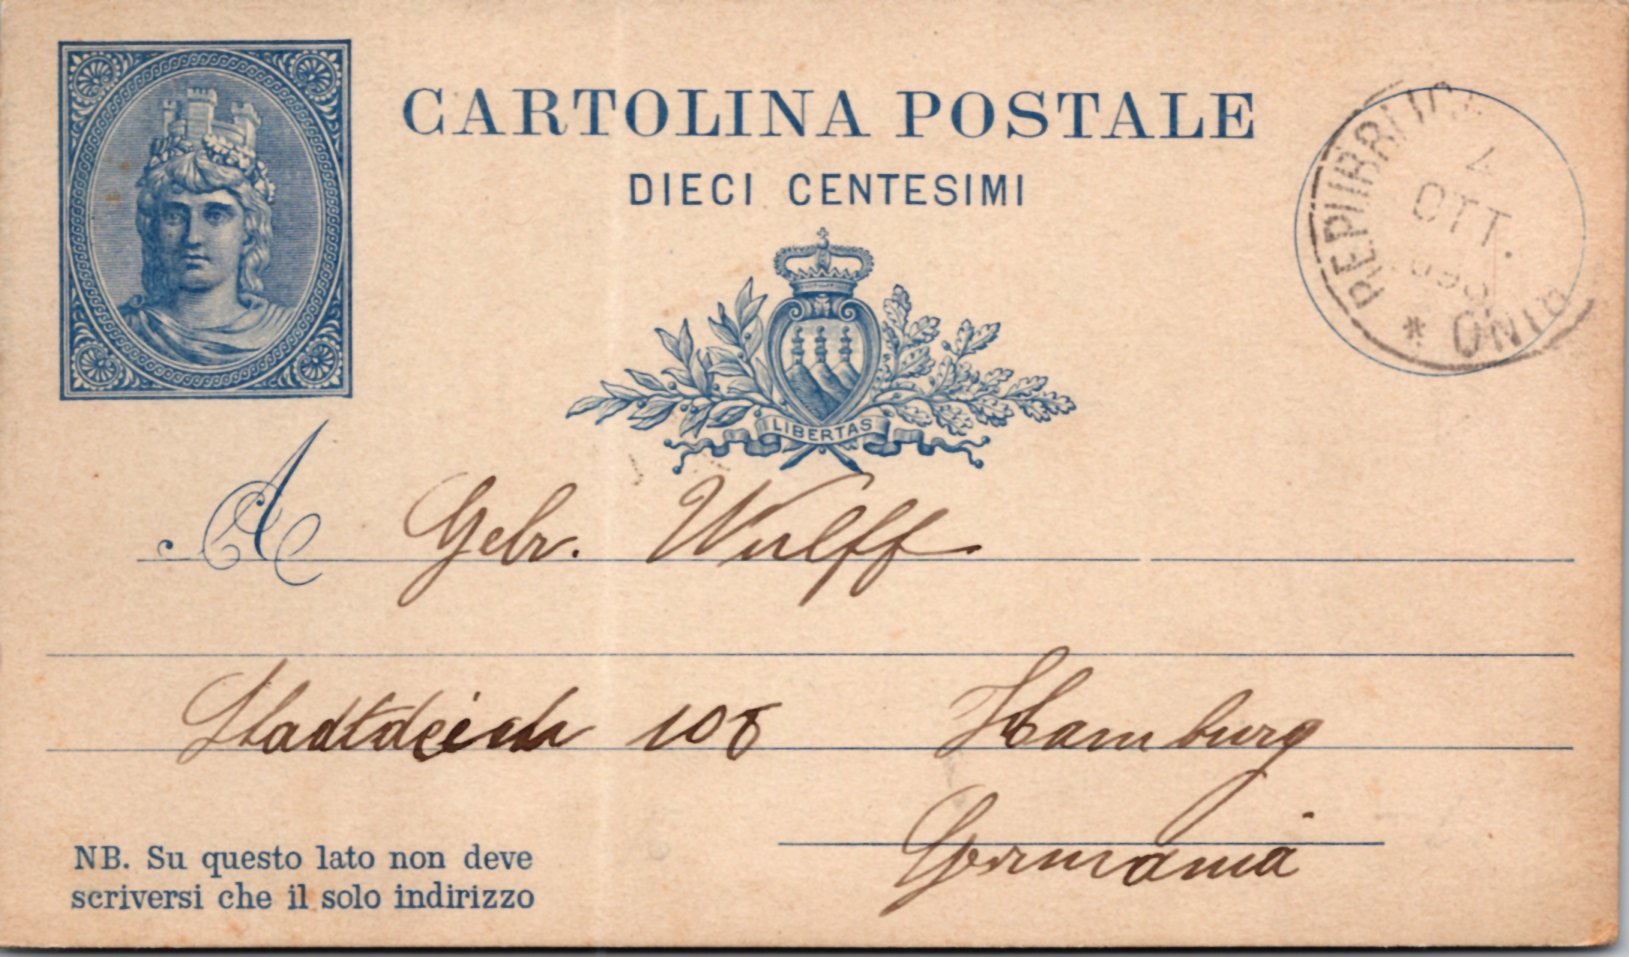 CARTOLINA POSTALE
DIECI CENTESIMI
REPUBBLICA
4
OTT.
LIBERTAS
A Gebr. Wulff
Stadtdeich 108 Hamburg
Germania
NB. Su questo lato non deve
scriversi che il solo indirizzo